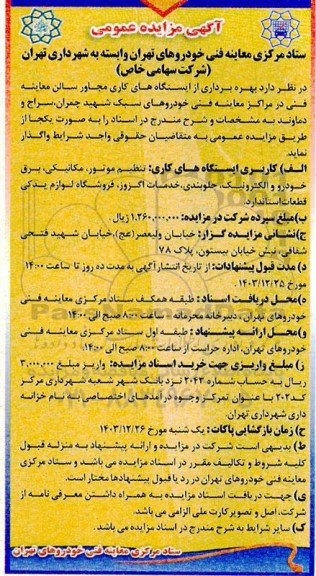 آگهی مزایده عمومی
ستاد مرکزی معاینه فنی خودروهای تهران وابسته به شهرداری تهران
(شرکت سهامی خاص)
در نظر دارد بهره برداری از ایستگاه های کاری مجاور سالن معاینه
فنی در مراکز معاینه فنی خودروهای سبک شهید چمران،سراج و
دماوند به مشخصات و شرح مندرج در اسناد را به صورت یکجا از
طریق مزایده عمومی به متقاضیان حقوقی واجد شرایط واگذار
نماید.
الف) کاربری ایستگاه های کاری: تنظیم موتور، مکانیکی، برق
خودرو و الکترونیک، جلوبندی،خدمات اگزوز، فروشگاه لوازم یدکی
قطعات استاندارد.
ب)مبلغ سپرده شرکت در مزایده: ۱,۲۶۰,۰۰۰,۰۰۰ ریال.
ج)نشانی مزایده گزار: خیابان ولیعصر(عج)،خیابان شهید فتحی
شقاقی،نبش خیابان بیستون، پلاک ۷۸
د)مدت قبول پیشنهادات: از تاریخ انتشار آگهی به مدت ده روز تا ساعت ۱۴:۰۰
مورخ ۱۴۰۳/۱۲/۲۵.
ه)محل دریافت اسناد: طبقه همکف ستاد مرکزی معاینه فنی
خودروهای تهران، دبیرخانه محرمانه – ساعت ۸:۰۰ صبح الی ۱۴:۰۰
و)محل ارائه پیشنهاد : طبقه اول ستاد مرکزی معاینه فنی
خودروهای تهران، اداره حراست از ساعت ۸:۰۰ صبح الی ۱۴:۰۰.
ز) مبلغ واریزی جهت خرید اسناد مزایده: واریز مبلغ ۳,۰۰۰,۰۰۰
ریال به حساب شماره ۲۰۴۳ نزد بانک شهر شعبه شهرداری مرکز
کد۲۰۲ با عنوان تمرکز وجوه درآمدهای اختصاصی به نام خزانه
داری شهرداری تهران.
ح) زمان بازگشایی پاکات: یک شنبه مورخ ۱۴۰۳/۱۲/۲۶
ط) بدیهی است شرکت در مزایده و ارائه پیشنهاد به منزله قبول
کلیه شروط و تکالیف مقرر در اسناد مزایده می باشد و ستاد مرکزی
معاینه فنی خودروهای تهران در رد یا قبول پیشنهادها مختار است.
ی) جهت دریافت اسناد مزایده به همراه داشتن معرفی نامه از
شرکت، اصل و تصویر کارت ملی الزامی می باشد.
ک) سایر شرایط به شرح مندرج در اسناد مزایده می باشد.
ستاد مرکزی معاینه فنی خودروهای تهران